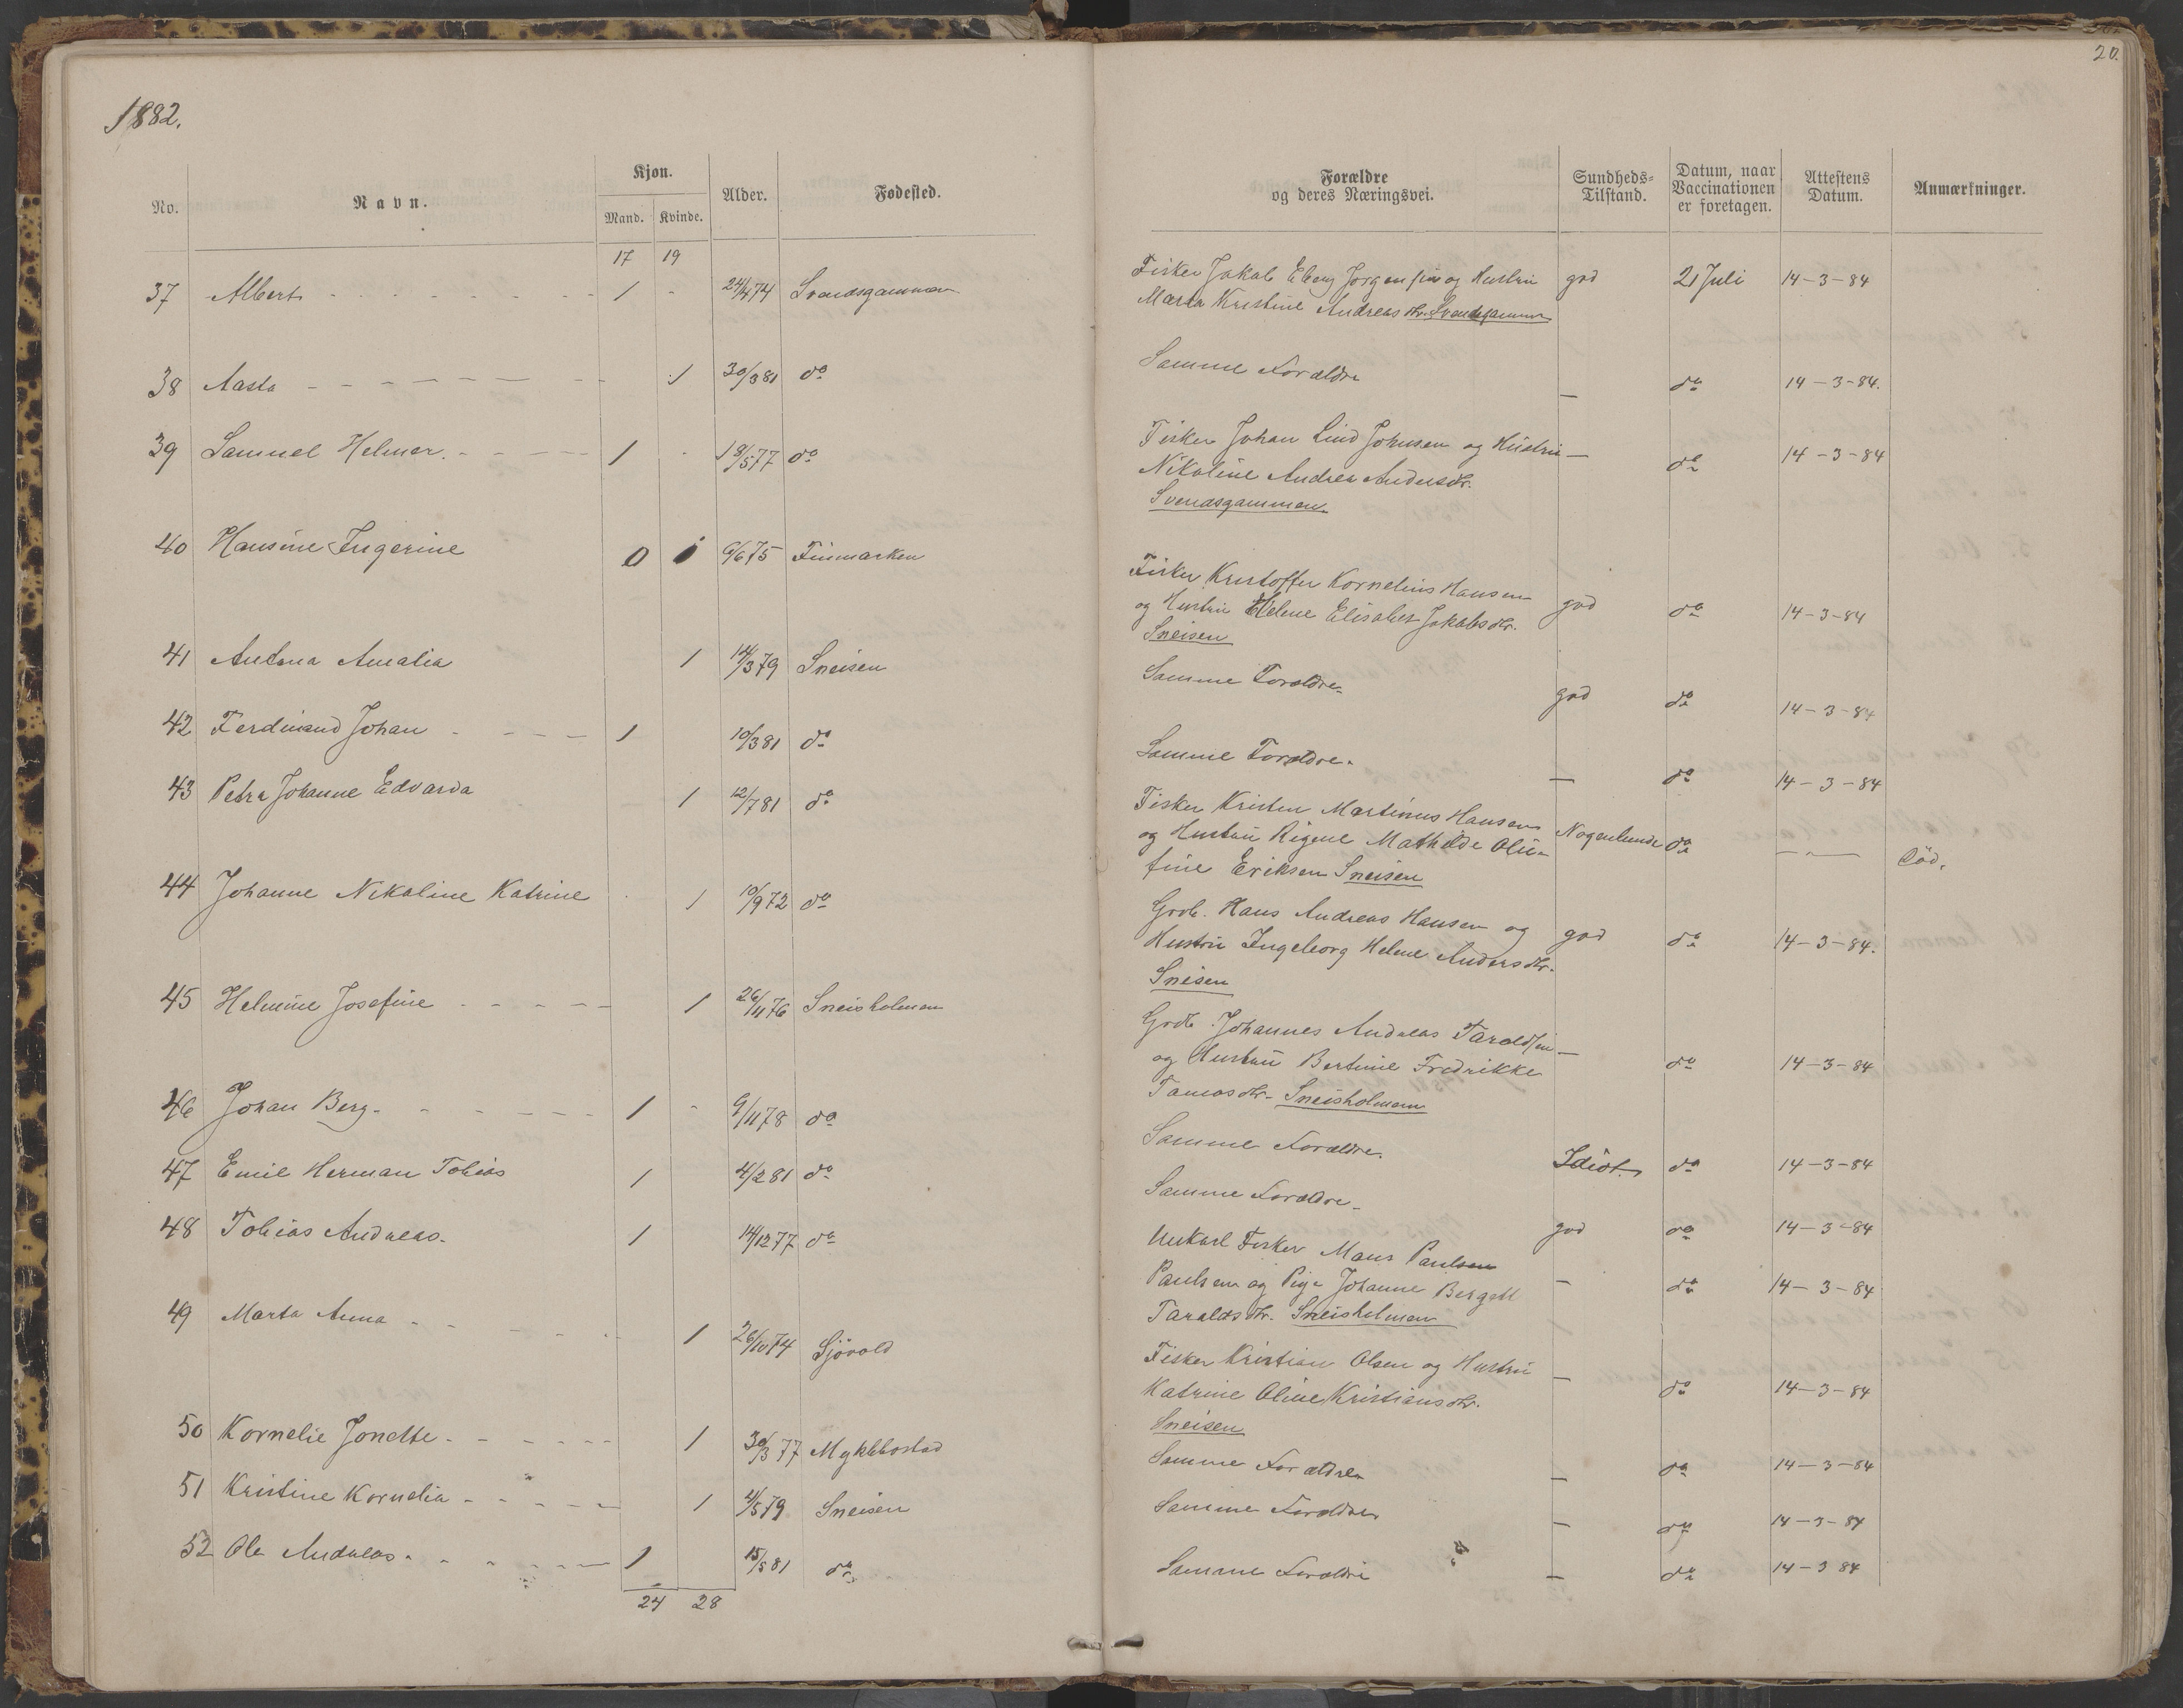 1882.
20.
No. Navn. Kjøn. Mand. Kvinde. Alder. Fødested.
Forældre og deres Næringsvei. Sundheds=Tilstand. Datum, naar Vaccinationen er foretagen. Attestens Datum. Anmærkninger.
17 19
37 Albert 1 24/4 74 Svendsgammen
Fisker Jakob Eberg Jørgensen og Hustru god 21 Juli 14-3-84
Marta Kristine Andreasdtr. Svendsgammen
38 Aasta 1 30/3 81 do
Samme Forældre — do 14-3-84.
39 Samuel Helmer. 1 18/5 77 do
Fisker Johan Lind Johnsen og Hustru — do 14-3-84
Nikoline Andrea Andersdtr.
Svendsgammen.
40 Hansine Ingerine 0 1 6/6 75 Finmarken
Fisker Kristoffer Kornelius Hansen
og Hustru Helene Elisabet Jakobsdtr. god do 14-3-84
Sneisen
41 Antona Amalia 1 14/3 79 Sneisen
Samme Forældre. god do 14-3-84
42 Ferdinand Johan 1 10/3 81 do
Samme Forældre. — do 14-3-84
43 Petra Johanne Edvarda 1 12/7 81 do
Fisker Kristen Martinus Hansen
og Hustru Rigene Mathilde Olu- Nogenlunde do — " — Död.
fine Eriksen Sneisen
44 Johanne Nikoline Katrine 1 10/9 72 do
Grdb. Hans Andreas Hansen og god do 14-3-84.
Hustru Ingeborg Helene Andersdtr.
Sneisen
45 Helmine Josefine 1 26/11 76 Sneisholmen
Grdb. Johannes Andreas Taraldsen —
og Hustru Bertine Fredrikke do 14-3-84
Tomasdtr. Sneisholmen
46 Johan Berg. 1 9/11 78 do
Samme Forældre. Idiot. do 14-3-84
47 Emil Herman Tobias 1 4/2 81 do
Samme Forældre. god do 14-3-84
48 Tobias Andreas. 1 14/12 77 do
Unkarl Fisker Mans Paulsen
Paulsen og Pige Johanne Bergett — do 14-3-84
Taraldsdtr. Sneisholmen
49 Marta Anna 1 26/10 74 Sjøvold
Fisker Kristian Olsen og Hustru —
Katrine Oline Kristiansdtr. do 14-3-84
Sneisen
50 Kornelie Jonette 1 30/3 77 Myklebostad
Samme Forældre — do 14-3-84
51 Kristine Kornelia 1 4/5 79 Sneisen
Samme Forældre — do 14-3-84
52 Ole Andreas. 1 15/5 81 do
Samme Forældre — do 14-3 84
24 28